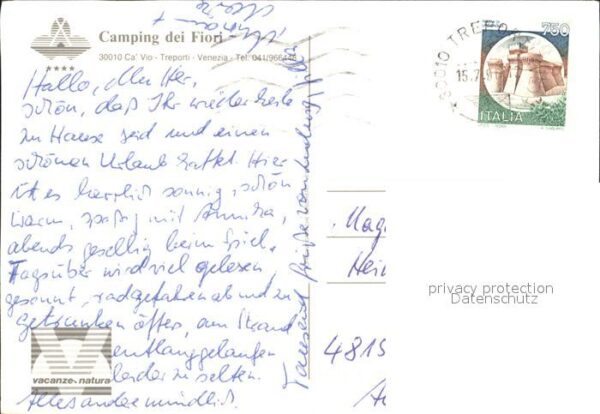 Camping dei Fiori
30010 Ca' Vio - Treporti - Venezia - Tel. 041/966448
Hallo, Mutter,
schön, daß Ihr wieder heile
zu Hause seid und einen
schönen Urlaub hattet. Hier
ist es herrlich sonnig, schön
warm, spaßig mit Annika,
abends gesellig beim Spiel.
Tagsüber wird viel gelesen,
gesonnt, radgefahren ab und zu
getrunken öfter, am Strand
entlanggelaufen
leider zu selten.
Alles andere mündlich.
Tausend Grüße von
vacanze natura
30010 TREPO
15.7.9
750
ITALIA
Mag
Hein
4815
privacy protection
Datenschutz